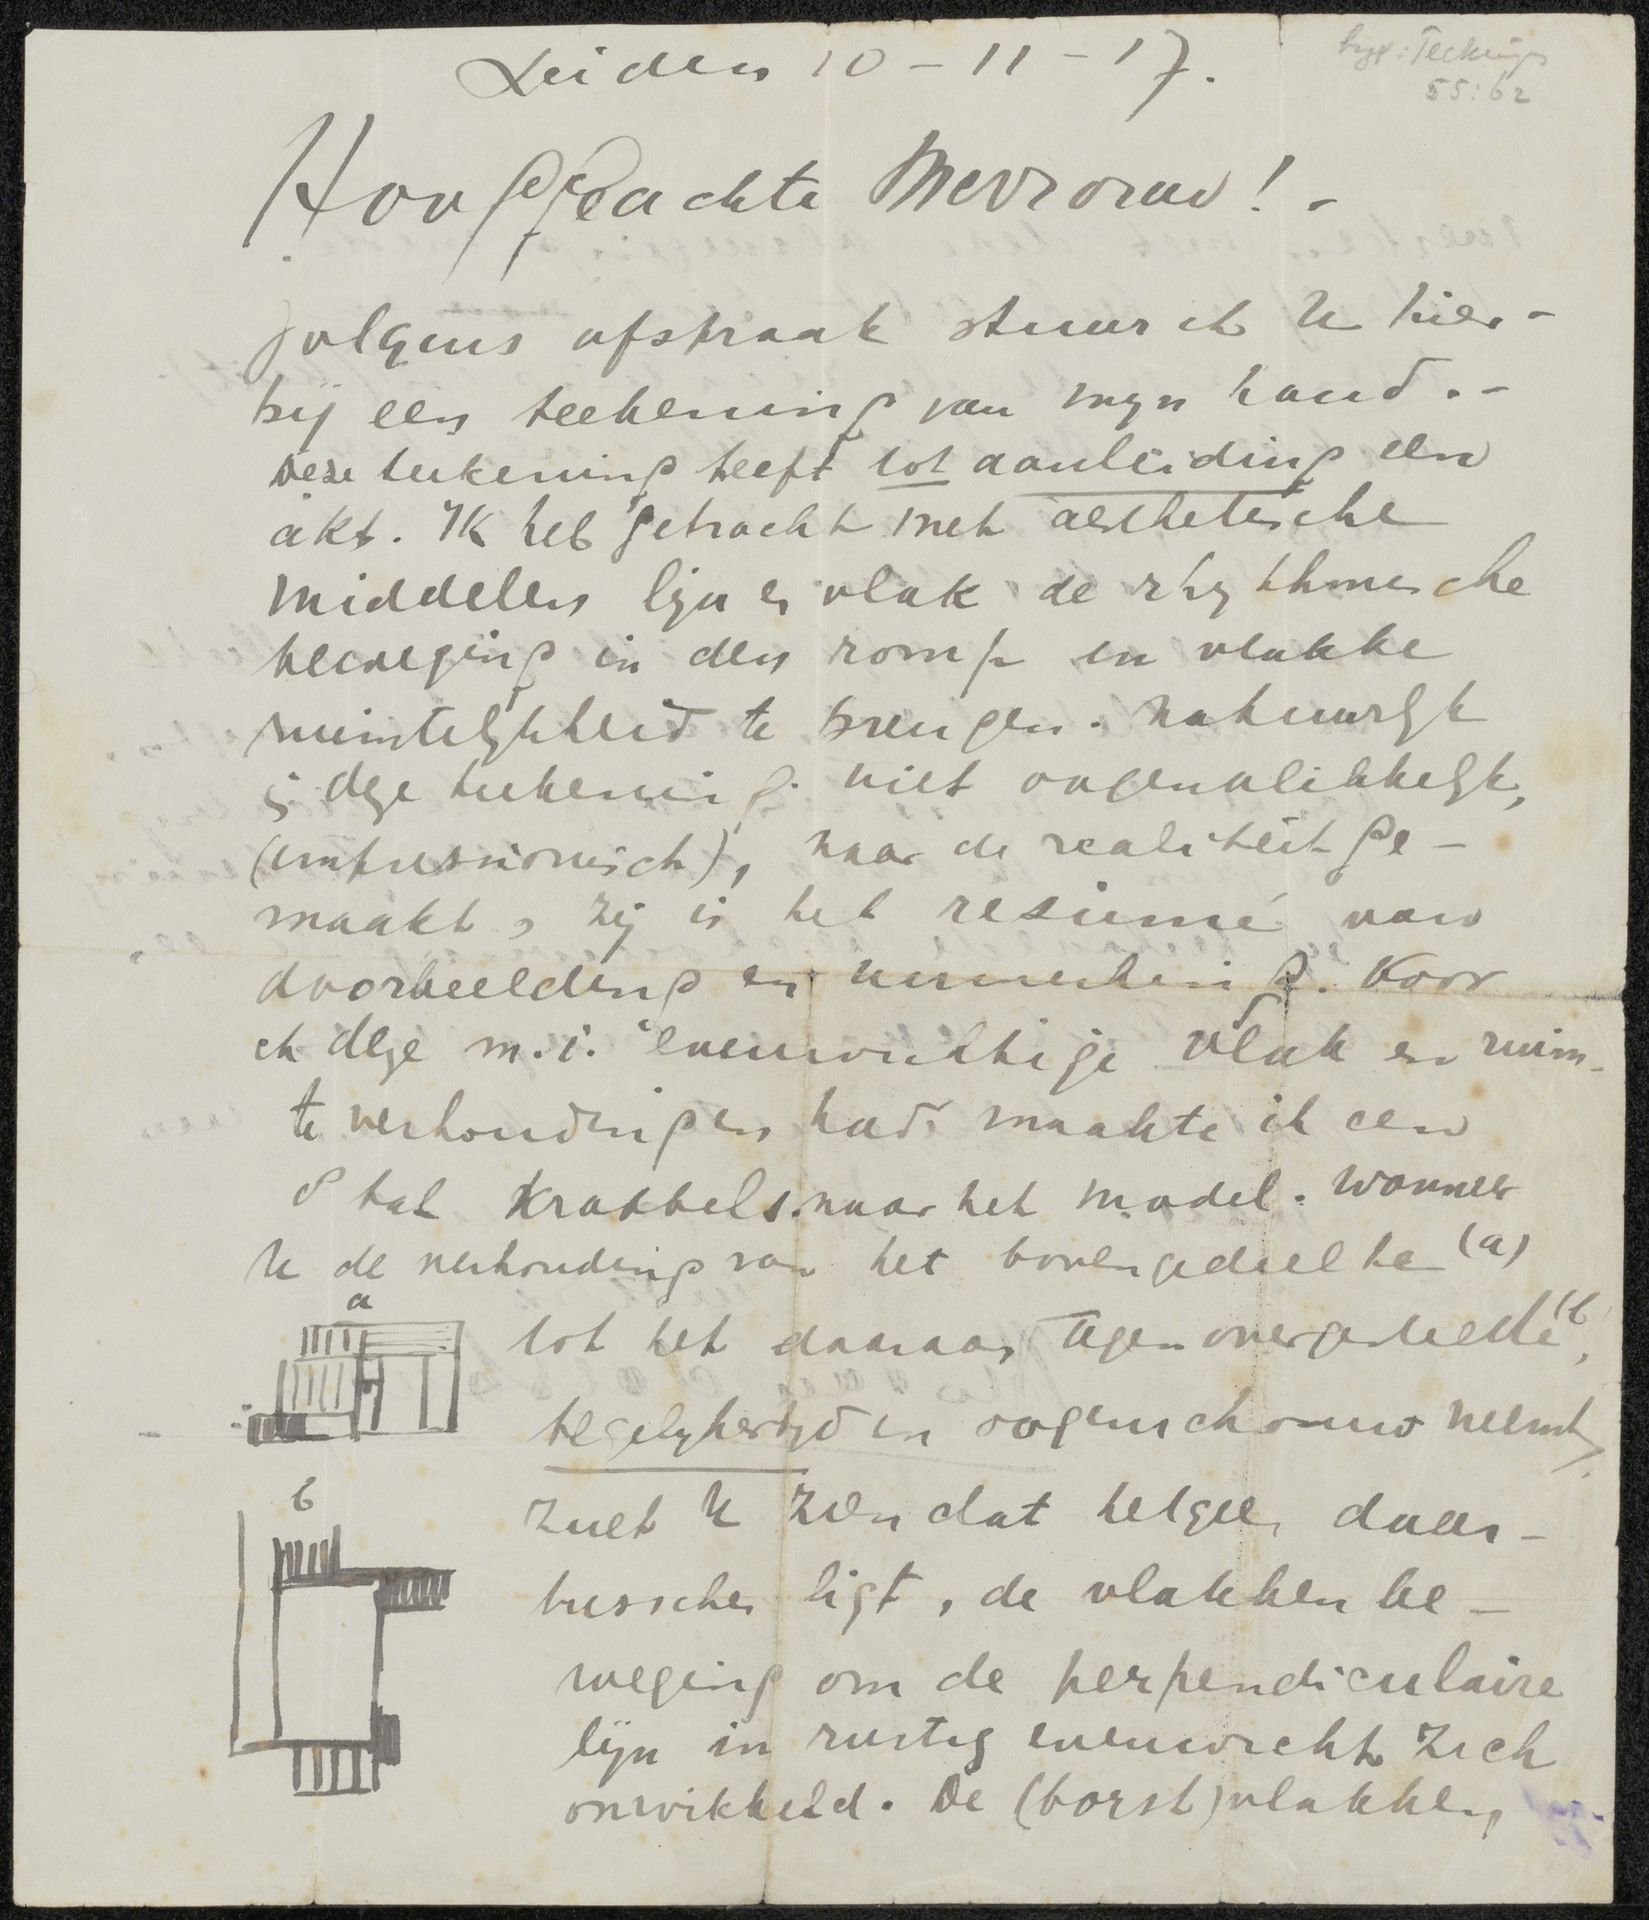 Leiden 10-11-17.
Teekings
55:62
Hooggeachte Mevrouw!-
Volgens afspraak stuur ik U hier-
bij een teekening van mijn hand.-
Deze teekening heeft tot aanleiding een
akt. Ik heb getracht met aesthetische
middelen lijn en vlak de rhythmische
beweging in den romp en vlakke
ruimtelijkheid te brengen. Natuurlijk
is deze teekening niet oogenblikkelijk,
(impressionisch), naar de realiteit ge-
maakt, zij is het resumé van
doorbeelding en herinnering. Voor
ik deze m.i. evenwichtige vlak en ruim-
te verhoudingen had maakte ik een
8 tal krabbels naar het model. Wanneer
U de verhouding van het bovengedeelte (a)
a
tot het daaraan tegenovergestelde (b,
tegelijkertijd in oogenschouw neemt,
b
zult U zien dat hetgeen daar-
tusschen ligt, de vlakken be-
weging om de perpendiculaire
lijn in rustig evenwicht zich
ontwikkeld. De (borst)vlakken